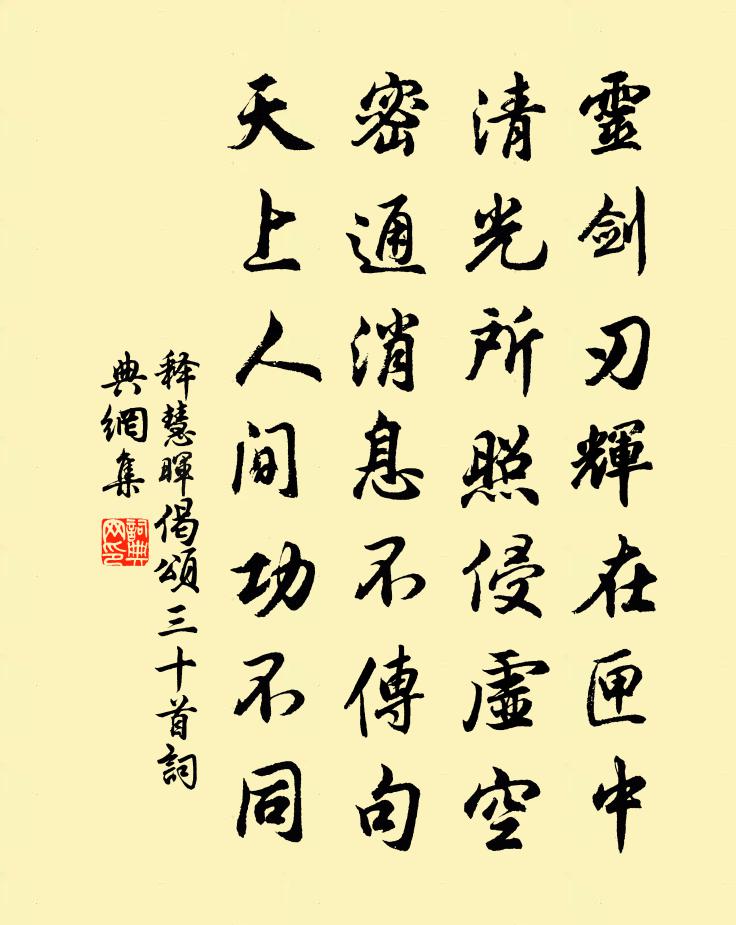 靈劍刃輝在匣中
清光所照侵虛空
密通消息不傳句
天上人间功不同
释慧暉偈頌三十首詞
典網集
詞典
网印